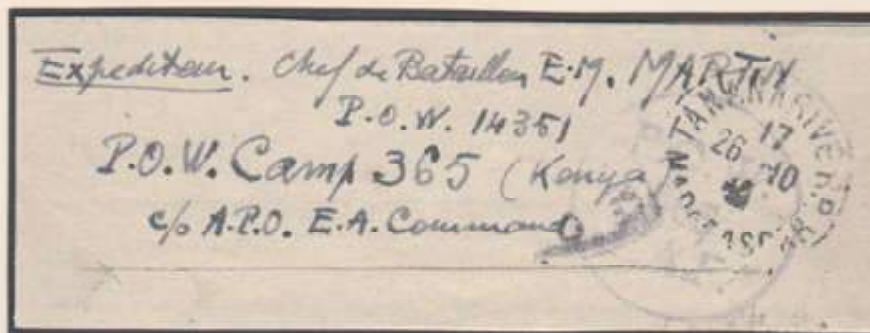 Expediteur. Chef de Bataillon E.M. MARTIN
P.O.W. 14351
P.O.W. Camp 365 (Kenya)
c/o A.P.O. E.A. Command
TANANARIVE R.P.
17
26 10
MADAGASCAR